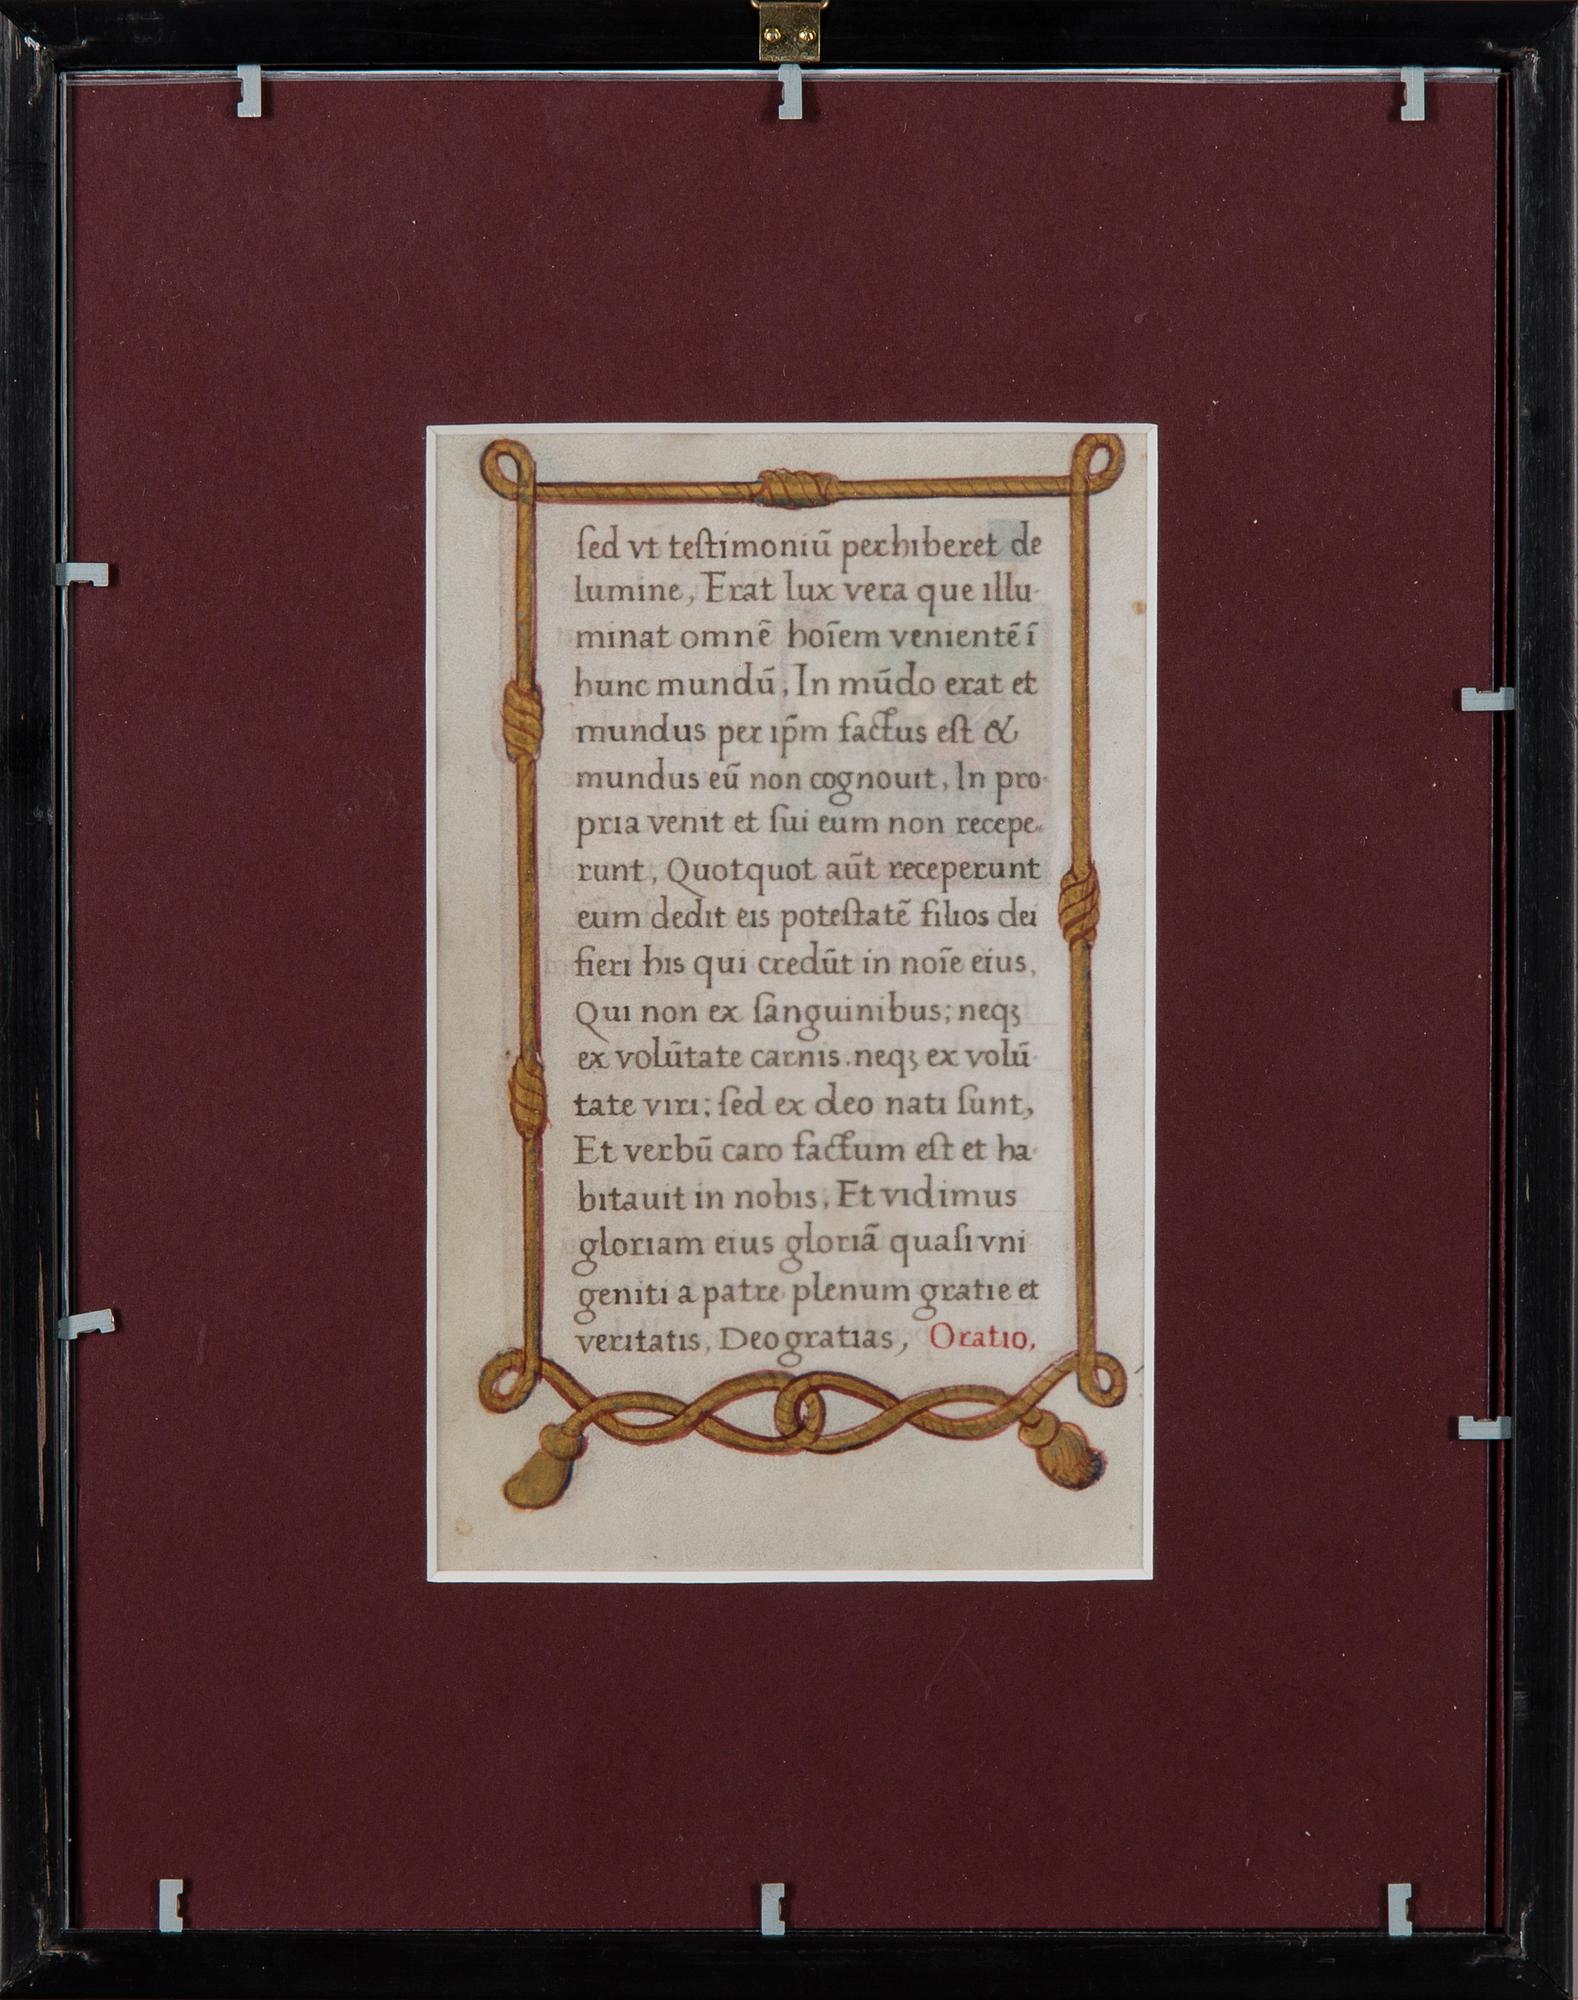 ſed vt teſtimoniū perhiberet de
lumine, Erat lux vera que illu-
minat omnē hoīem venientē ī
hunc mundū, In mūdo erat et
mundus per ip̄m factus eſt &
mundus eū non cognouit, In pro-
pria venit et ſui eum non recepe-
runt, Quotquot aūt receperunt
eum dedit eis poteſtatē filios dei
fieri his qui credūt in noīe eius,
Qui non ex ſanguinibus; neqꝫ
ex volūtate carnis. neqꝫ ex volū-
tate viri; ſed ex deo nati ſunt,
Et verbū caro factum eſt et ha-
bitauit in nobis, Et vidimus
gloriam eius gloriā quaſi vni
geniti a patre plenum gratie et
veritatis, Deo gratias, Oratio,